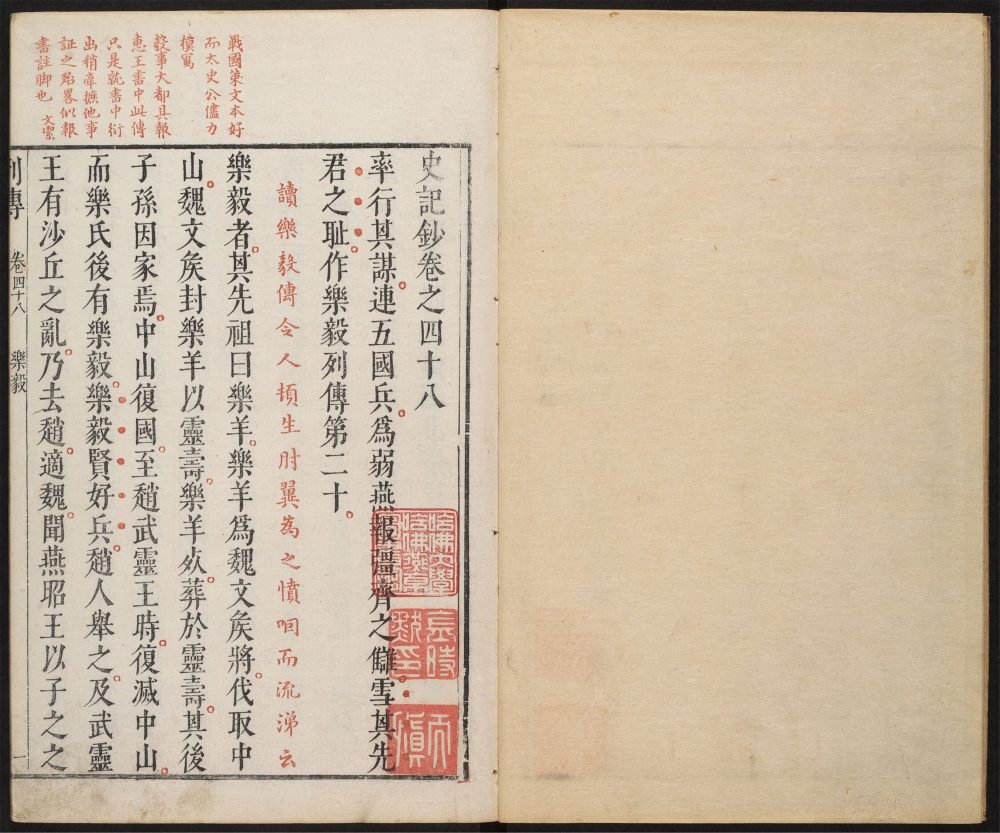 戰國策文本好
而太史公儘力
模寫
發事大都具報
惠王書中此傳
只是就書中衍
出稍摭他事
証之殆畧似報
書註脚也 文潔
史記鈔卷之四十八
率行其謀連五國兵爲弱燕報彊齊之讎雪其先
君之耻作樂毅列傳第二十
讀樂毅傳令人頓生肘翼為之憤咽而流涕云
樂毅者其先祖曰樂羊樂羊爲魏文矦將伐取中
山魏文矦封樂羊以靈壽樂羊死葬於靈壽其後
子孫因家焉中山復國至趙武靈王時復滅中山
而樂氏後有樂毅樂毅賢好兵趙人舉之及武靈
王有沙丘之亂乃去趙適魏聞燕昭王以子之之
列傳 卷四十八 樂毅 一